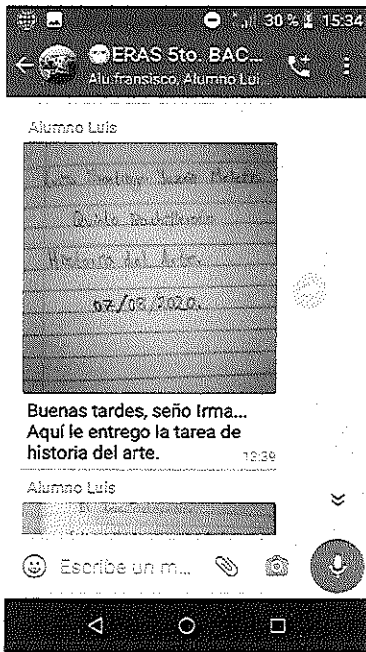 30 % 15:34
ERAS 5to. BAC...
Alu.fransisco, Alumno Lui
Alumno Luis
Luis
Quinto Bachillerato
Historia del Arte.
07/08/2020.
Buenas tardes, seño Irma...
Aquí le entrego la tarea de
historia del arte.
13:39
Alumno Luis
Escribe un m...